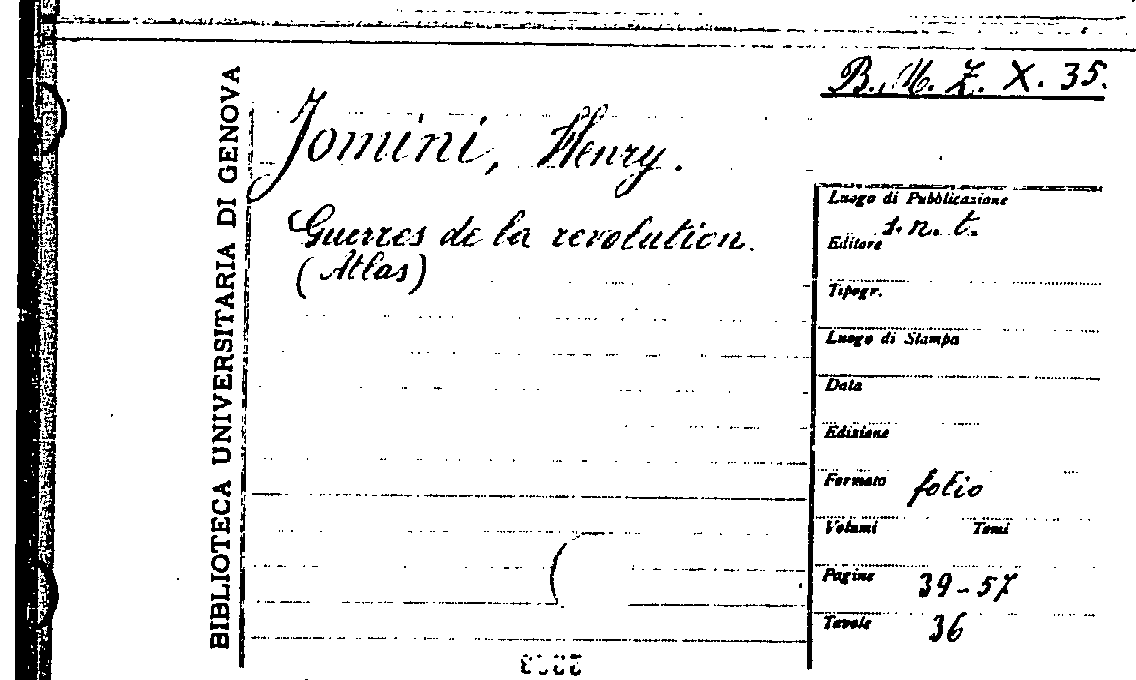 B. M. Z. X. 35.
BIBLIOTECA UNIVERSITARIA DI GENOVA
Jomini, Henry.
Guerres de la revolution.
(Atlas)
Luogo di Pubblicazione
s. n. t.
Editore
Tipogr.
Luogo di Stampa
Data
Edizione
Formato folio
Volumi Tomi
Pagine 39-57
Tavole 36